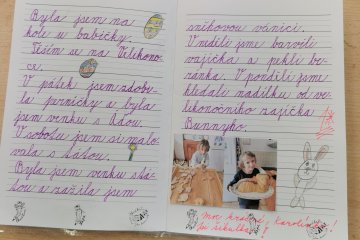 Byla jsem na
kole u babičky.
Těším se na Velikono-
ce.
V pátek jsem zdobi-
la perníčky a byla
jsem venku s Áďou.
V sobotu jsem si malo-
vala s tátou.
Byla jsem venku s tá-
tou a zažila jsem
sněhovou vánici.
V neděli jsme barvili
vajíčka a pekli be-
ránka. V pondělí jsme
hledali nadílku od ve-
likonočního zajíčka
Bunnyho.
Moc krásné, Karolínko!